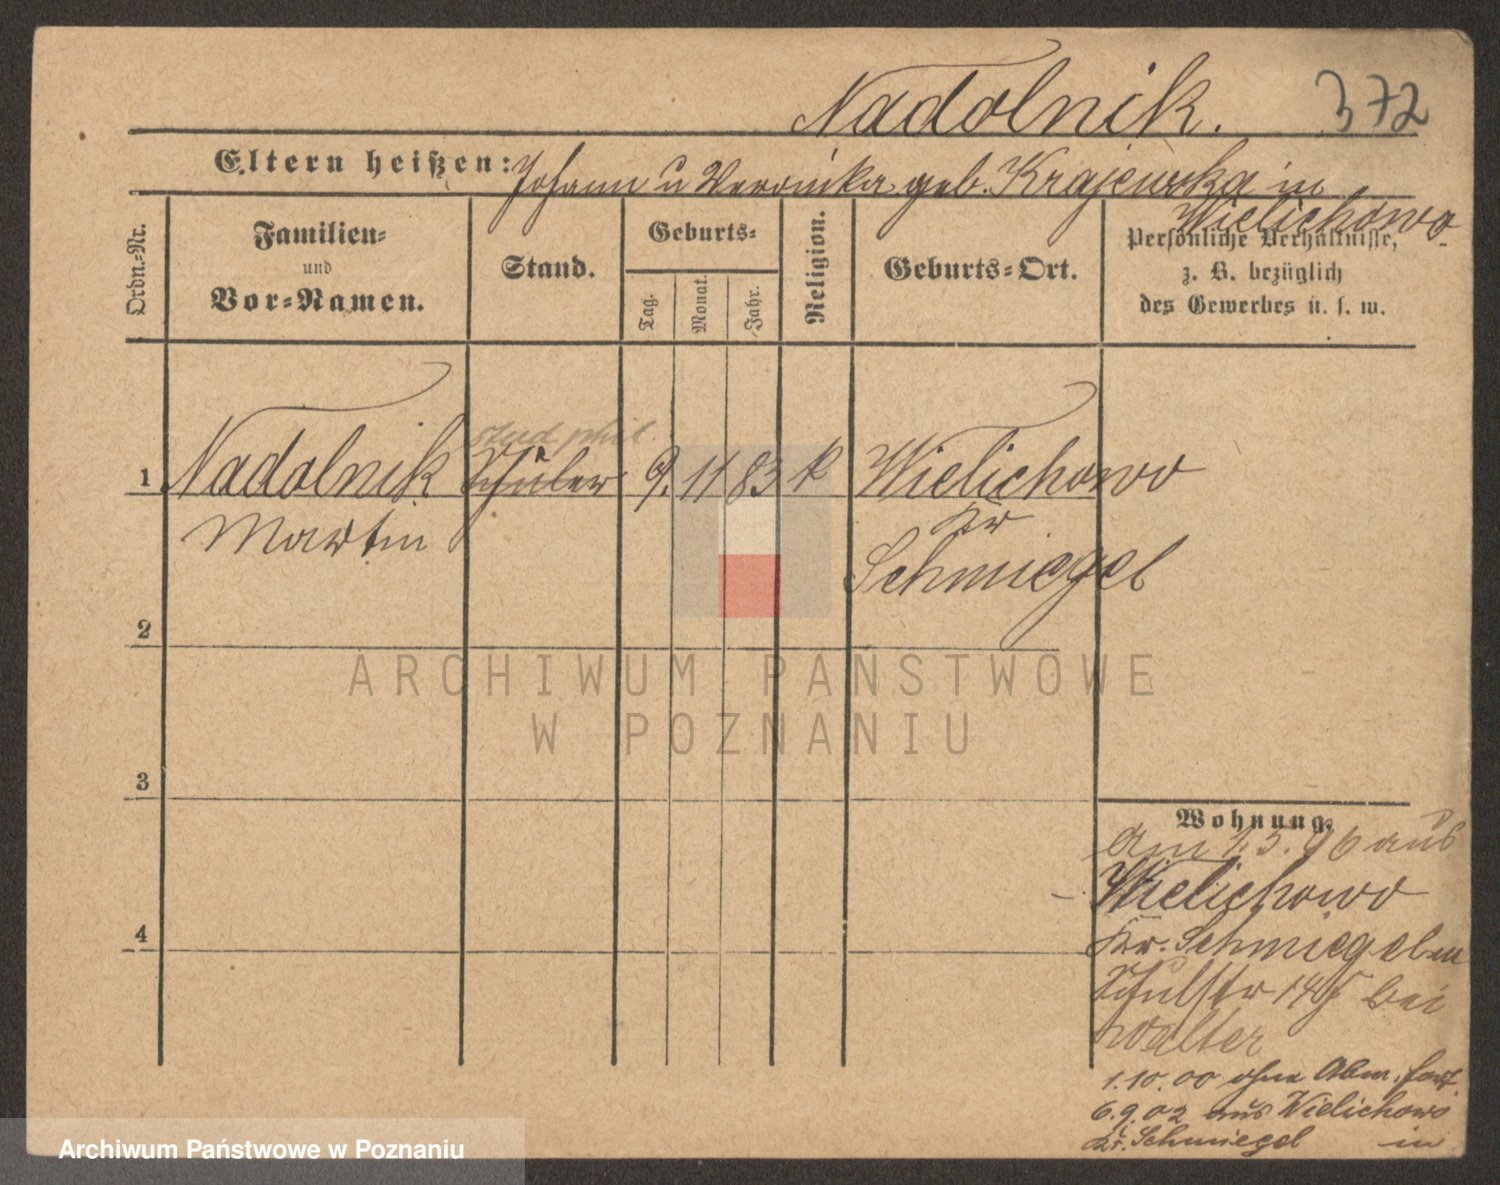 Nadolnik. 372
Eltern heißen: Johann u Veronika geb. Krajewska in
Wielichowo
Ordn.-Nr.
Familien-
und
Vor-Namen.
Stand.
Geburts-
Tag.
Monat.
Jahr.
Religion.
Geburts-Ort.
Persönliche Verhältnisse,
z. B. bezüglich
des Gewerbes u. s. w.
stud. phil.
1 Nadolnik Schüler 9. 11 83 k Wielichowo
Martin Kr
Schmiegel
2
ARCHIWUM PAŃSTWOWE
W POZNANIU
3
Wohnung.
am 1.5.96 aus
Wielichowo
4
Kr. Schmiegel
Schulstr bei
Walter
1.10.00 ohne Abm. fort.
6.9.02 aus Wielichowo
Kr. Schmiegel in
Archiwum Państwowe w Poznaniu